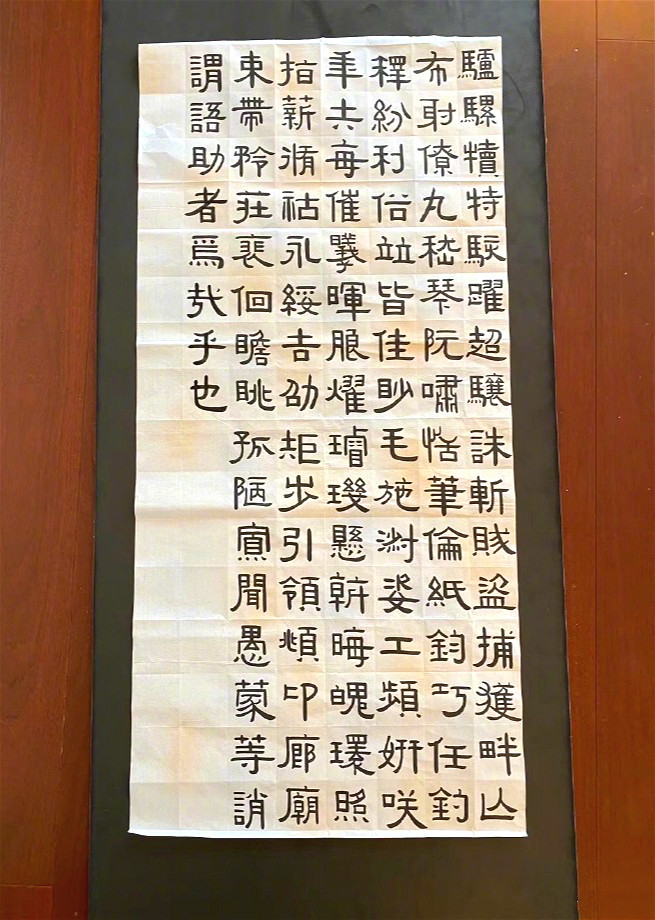 驢騾犢特駭躍超驤誅斬賊盜捕獲畔亡
布射僚丸嵇琴阮嘯恬筆倫紙鈞巧任釣
釋紛利俗竝皆佳眇毛施淑姿工頻妍咲
年矢每催羲暉朖燿璿璣懸斡晦魄環照
指薪脩祜永綏吉劭矩步引領頫卬廊廟
束帶矜莊裵佪瞻眺孤陋寡聞愚蒙等誚
謂語助者焉哉乎也